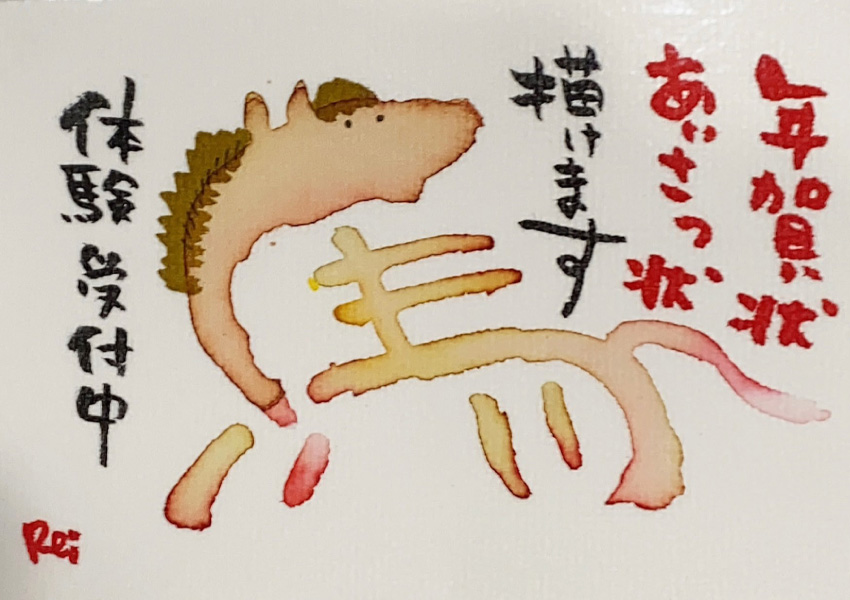 年賀状
あいさつ状
描けます
馬
体験受付中
Rei